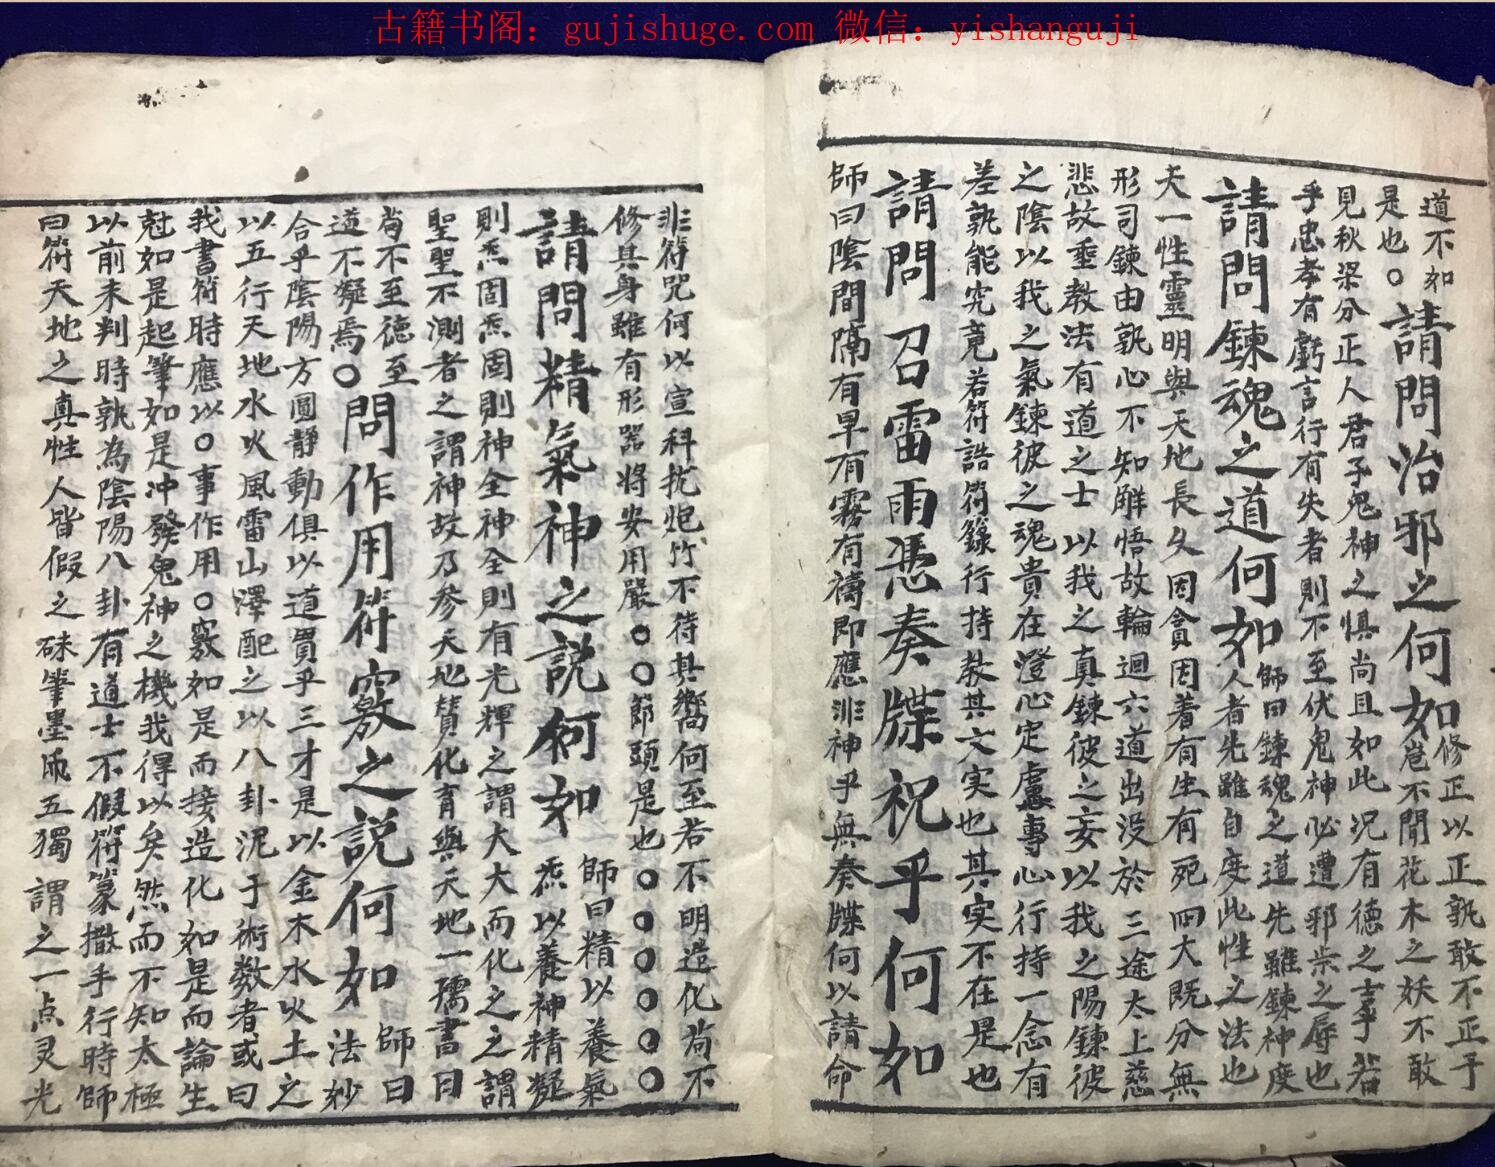 古籍书阁：gujishuge.com 微信：yishanguji
道不如
是也〇請問治邪之何如
修正以正孰敢不正于
豈不聞花木之妖不敢
見秋梁分正人君子鬼神之惧尚且如此况有德之士乎若
乎忠孝有虧言行有失者則不至伏鬼神必遭邪祟之辱也
請問鍊魂之道何如
師曰鍊魂之道先雖鍊神度
人者先雖自度此性之法也
夫一性靈明與天地長久因貪因着有生有死四大既分無
形司鍊由孰心不知解悟故輪迴六道出没於三途太上慈
悲故垂教法有道之士以我之真鍊彼之妄以我之陽鍊彼
之陰以我之氣鍊彼之魂貴在澄心定慮專心行持一念有
差孰能究竟若符誥符籙行持教其文实也其实不在是也
請問召雷雨憑奏牒祝乎何如
師曰陰間隔有旱有霧有禱即應非神乎無奏牒何以請命
非符咒何以宣科抗炮竹不待其嚮何至若不明造化苟不
修其身雖有形器將安用嚴〇〇節頭是也〇〇〇〇〇〇
請問精氣神之説何如
師曰精以養氣
炁以養神精凝
則炁固炁固則神全神全則有光輝之謂大大而化之之謂
聖聖不測者之謂神故乃參天地賛化育與天地一孺書曰
苟不至德至
道不凝焉〇問作用符竅之説何如
師曰
法妙
合乎陰陽方圓静動俱以道貫乎三才是以金木水火土之
以五行天地水火風雷山澤配之以八卦泥于術数者或曰
我書符時應以〇事作用〇竅如是而接造化如是而論生
尅如是起筆如是冲發鬼神之機我得以矣然而不知太極
以前未判時孰為陰陽八卦有道士不假符篆撒手行時師
曰符天地之真性人皆假之硃筆墨 五獨謂之一点灵光